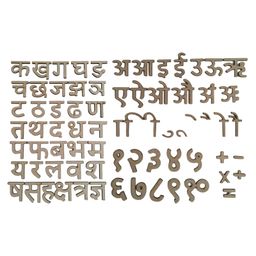 क ख ग घ ङ
च छ ज झ ञ
ट ठ ड ढ ण
त थ द ध न
प फ ब भ म
य र ल व श
ष स ह क्ष त्र ज्ञ
अ आ इ ई उ ऊ ऋ
ए ऐ ओ औ अं अः
१ २ ३ ४ ५
६ ७ ८ ९ ०
+ -
× ÷
=